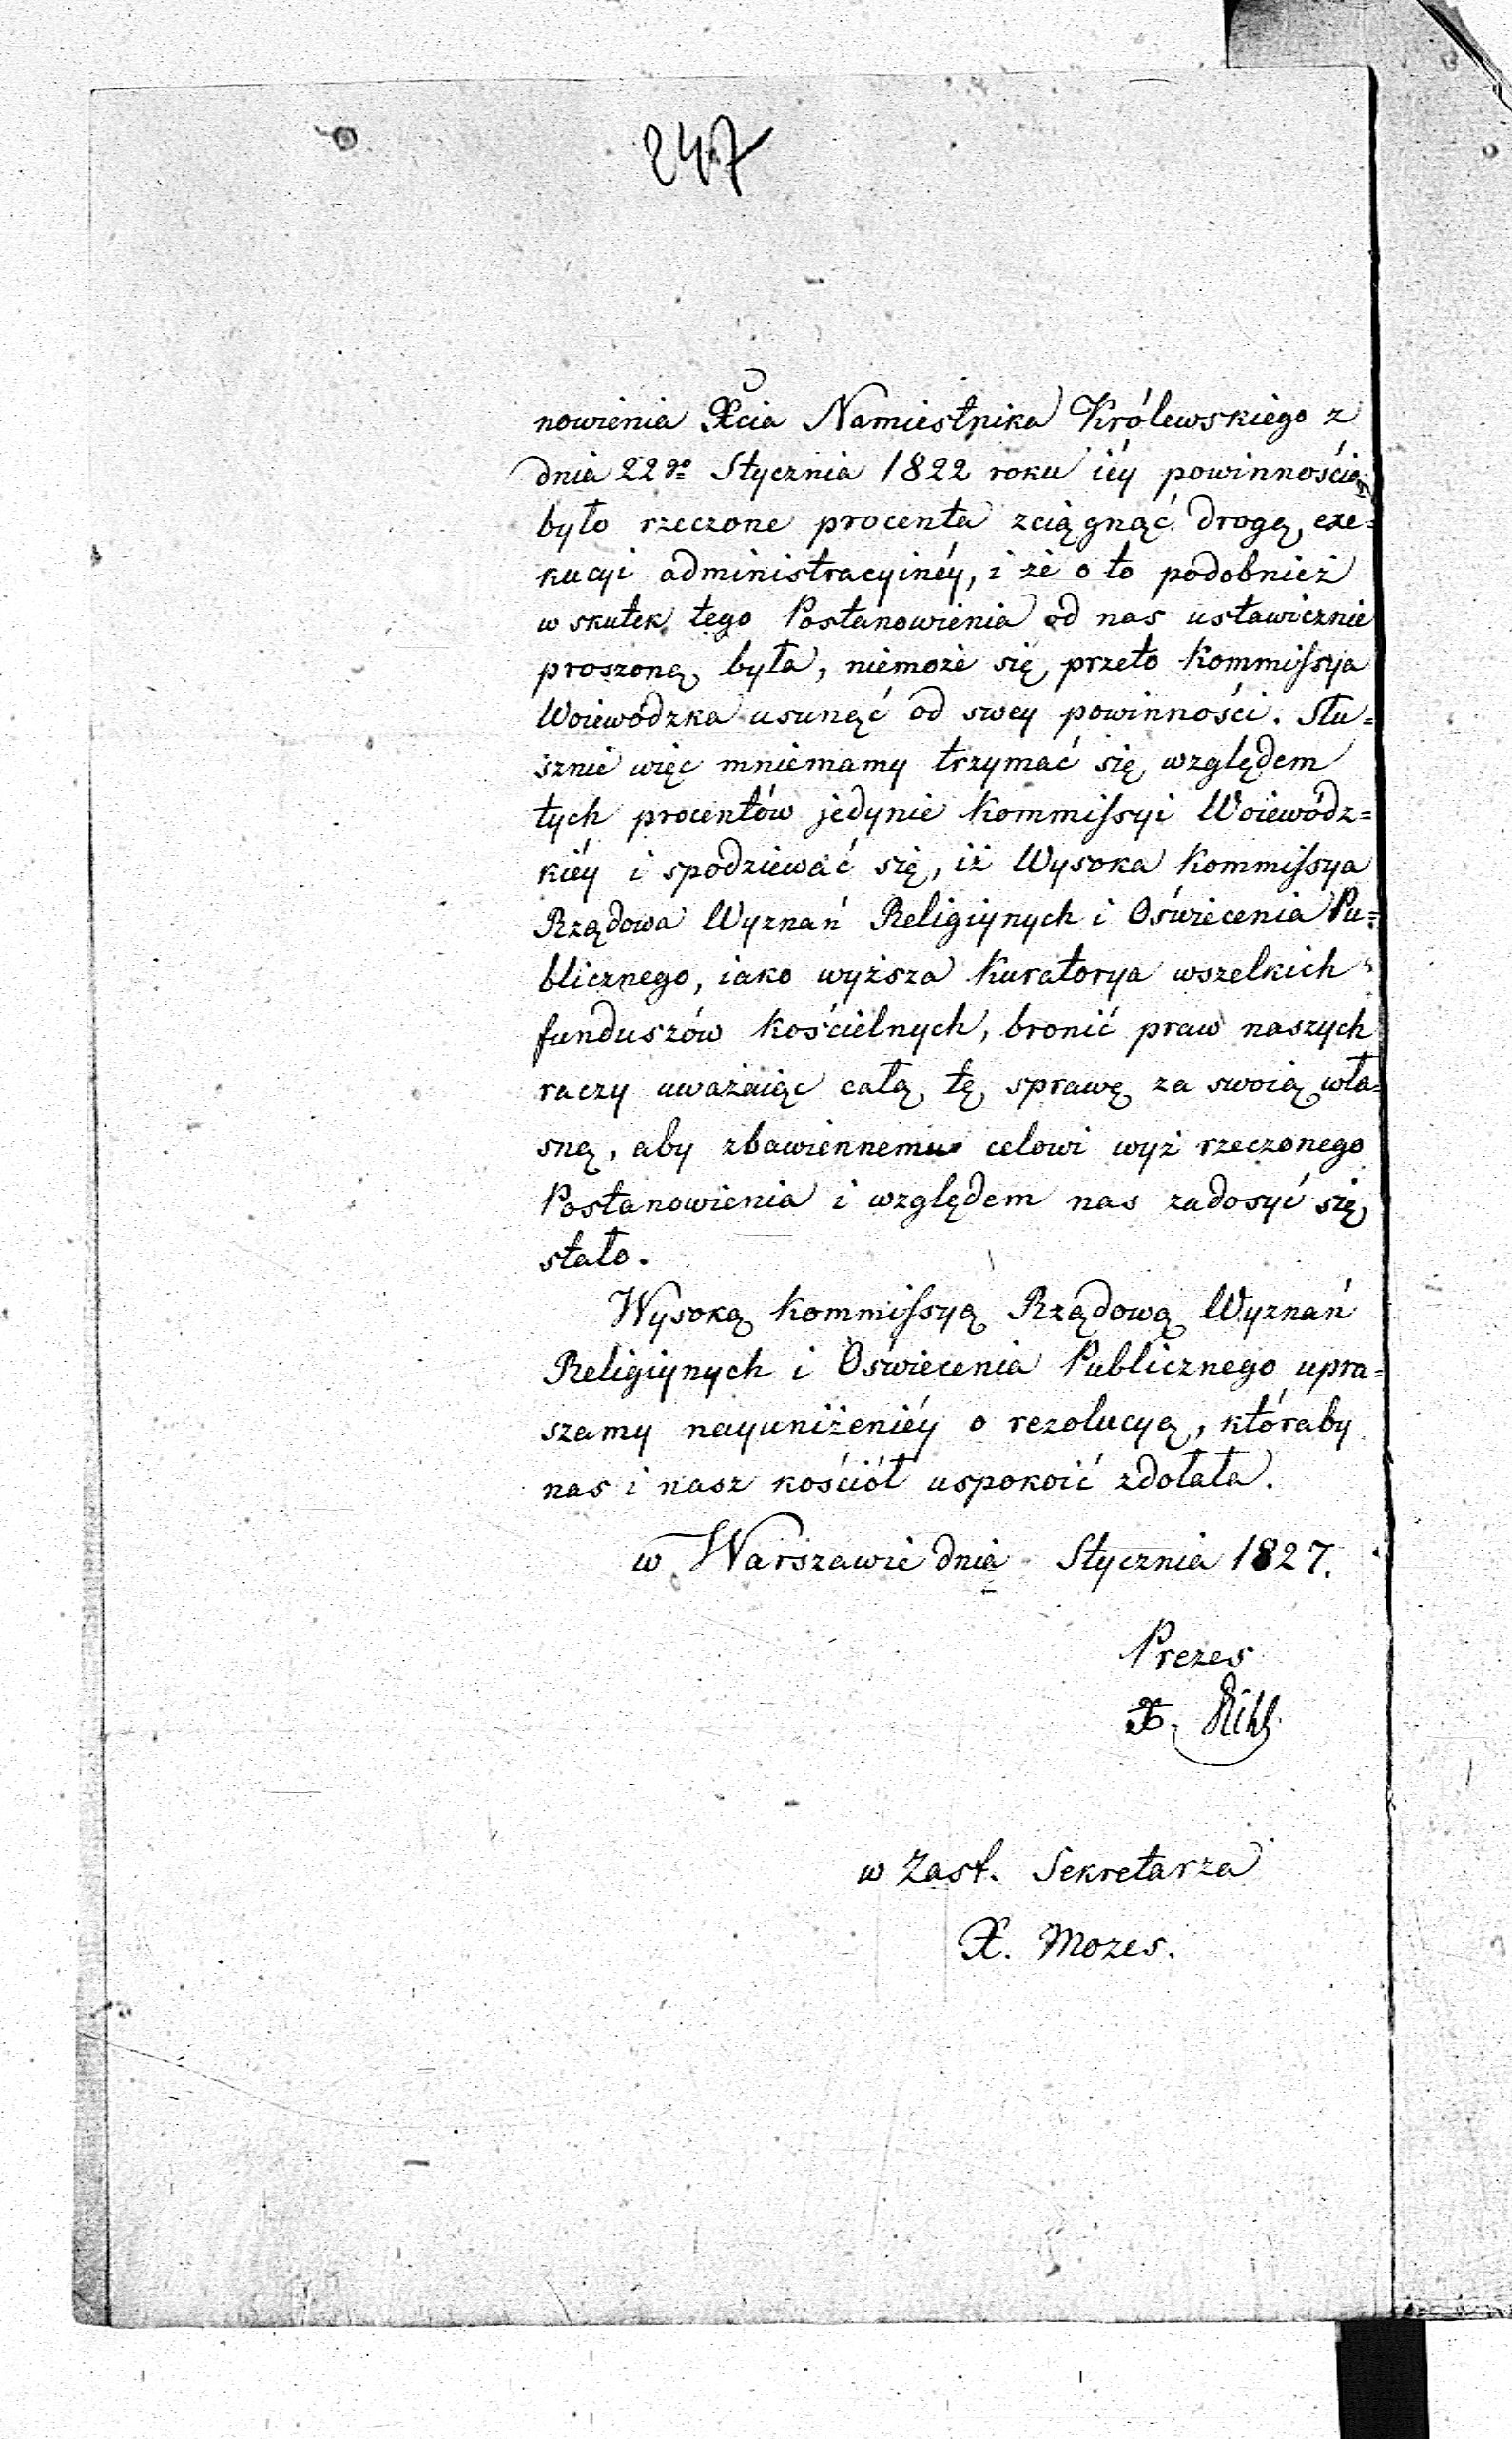 247
nowienia Xcia Namiestnika Królewskiego z
dnia 22go Stycznia 1822 roku iéy powinnością
było rzeczone procenta zciągnąć drogą exe=
kucyi administracyinéy, i że o to podobnież
w skutek tego Postanowienia od nas ustawicznie
proszoną była, niemoże się przeto Kommissya
Woiewódzka usunąć od swey powinności. Słu=
sznie więc mniemamy trzymać się względem
tych procentów jedynie Kommissyi Woiewódz=
kiéy i spodziewać się, iż Wysoka Kommissya
Rządowa Wyznań Religiynych i Oświecenia Pu=
blicznego, iako wyższa Kuratorya wszelkich
funduszów Kościelnych, bronić praw naszych
raczy uważaiąc całą tę sprawę za swoią wła=
sną, aby zbawiennemu celowi wyż rzeczonego
Postanowienia i względem nas zadosyć się
stało.
Wysoką Kommissyą Rządową Wyznań
Religiynych i Oświecenia Publicznego upra=
szamy nayuniżeniéy o rezolucyą, któraby
nas i nasz kościół uspokoić zdołała.
w Warszawie dnia Stycznia 1827.
Prezes
X.
w Zast. Sekretarza
X. Mozes.